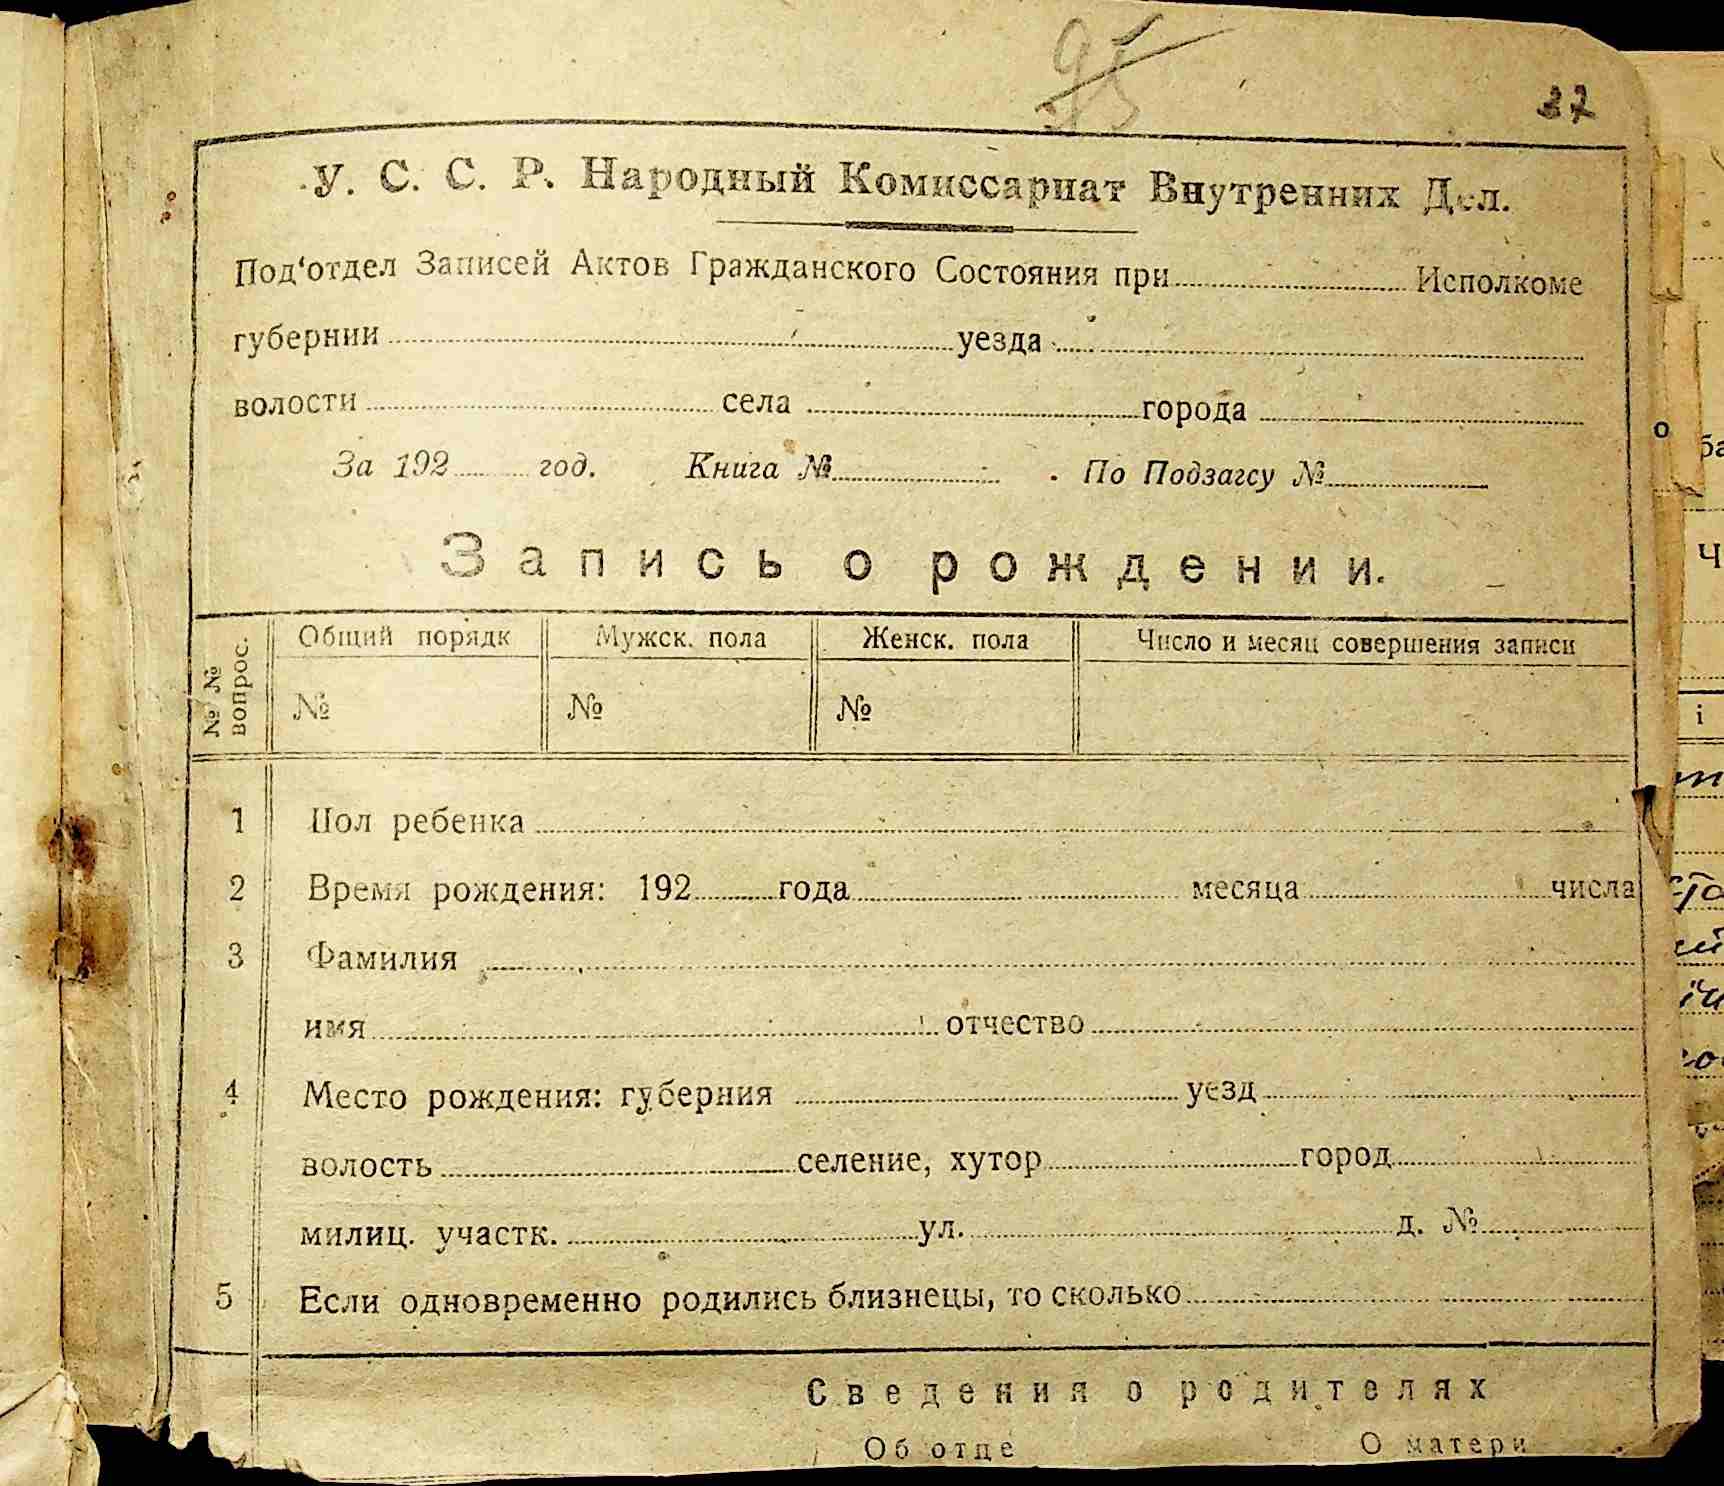 95
37
У. С. С. Р. Народный Комиссариат Внутренних Дел.
Под‘отдел Записей Актов Гражданского Состояния при Исполкоме
губернии уезда
волости села города
За 192 год. Книга № По Подзагсу №
Запись о рождении.
№№ вопрос. Общий порядк Мужск. пола Женск. пола Число и месяц совершения записи
№ № №
1 Пол ребенка
2 Время рождения: 192 года месяца числа
3 Фамилия
имя отчество
4 Место рождения: губерния уезд
волость селение, хутор город
милиц. участк. ул. д. №
5 Если одновременно родились близнецы, то сколько
Сведения о родителях
Об отце О матери